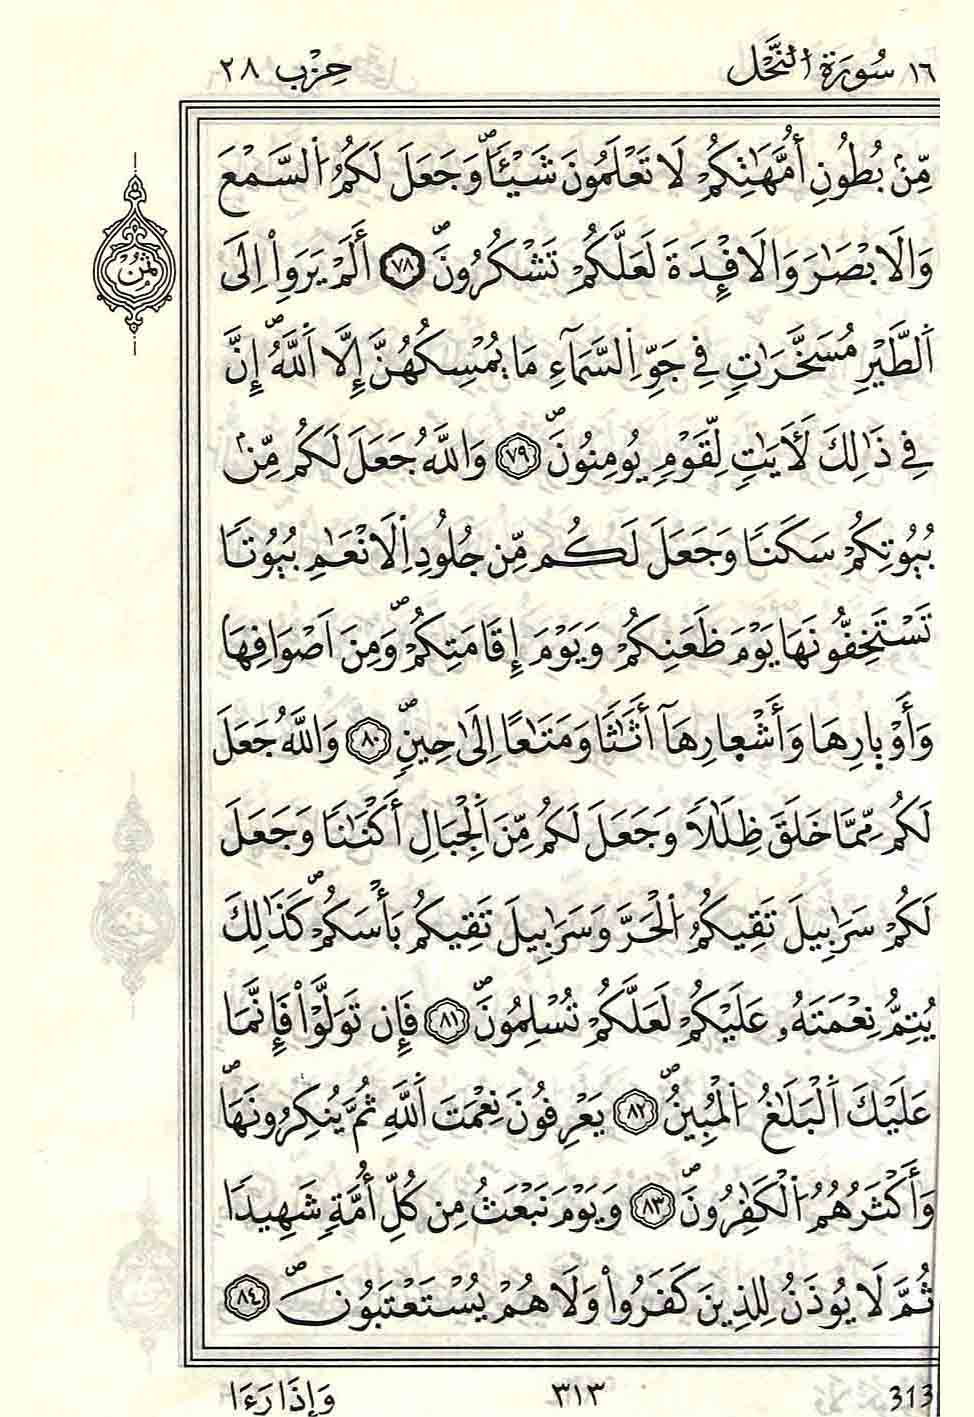 ١٦ سُورَةُ النَّحْل حِزْب ٢٨
مِّنۢ بُطُونِ أُمَّهَٰتِكُمْ لَا تَعْلَمُونَ شَيْـٔاًۖ وَجَعَلَ لَكُمُ اُ۬لسَّمْعَ
وَالَابْصَٰرَ وَالَافْـِٕدَةَ لَعَلَّكُمْ تَشْكُرُونَۖ ٧٨ أَلَمْ يَرَوِاْ اِلَى
ثُمُن
اَ۬لطَّيْرِ مُسَخَّرَٰتٖ فِے جَوِّ اِ۬لسَّمَآءِ مَا يُمْسِكُهُنَّ إِلَّا اَ۬للَّهُۖ إِنَّ
فِے ذَٰلِكَ لَأٓيَٰتٖ لِّقَوْمٖ يُومِنُونَۖ ٧٩ وَاللَّهُ جَعَلَ لَكُم مِّنۢ
بُيُوتِكُمْ سَكَناٗ وَجَعَلَ لَكُم مِّن جُلُودِ اِ۬لَانْعَٰمِ بُيُوتاٗ
تَسْتَخِفُّونَهَا يَوْمَ ظَعَنِكُمْ وَيَوْمَ إِقَامَتِكُمْۖ وَمِنَ اَصْوَافِهَا
وَأَوْبِارِهَا وَأَشْعِارِهَآ أَثَٰثاٗ وَمَتَٰعاً اِلَىٰ حِينٖۖ ٨٠ وَاللَّهُ جَعَلَ
لَكُم مِّمَّا خَلَقَ ظِلَٰلاٗ وَجَعَلَ لَكُم مِّنَ اَ۬لْجِبَالِ أَكْنَٰناٗ وَجَعَلَ
لَكُمْ سَرَٰبِيلَ تَقِيكُمُ اُ۬لْحَرَّ وَسَرَٰبِيلَ تَقِيكُم بَأْسَكُمْۖ كَذَٰلِكَ
يُتِمُّ نِعْمَتَهُۥ عَلَيْكُمْ لَعَلَّكُمْ تُسْلِمُونَۖ ٨١ فَإِن تَوَلَّوْاْ فَإِنَّمَا
عَلَيْكَ اَ۬لْبَلَٰغُ اُ۬لْمُبِينُۖ ٨٢ يَعْرِفُونَ نِعْمَتَ اَ۬للَّهِ ثُمَّ يُنكِرُونَهَاۖ
وَأَكْثَرُهُمُ اُ۬لْكَٰفِرُونَۖ ٨٣ وَيَوْمَ نَبْعَثُ مِن كُلِّ أُمَّةٖ شَهِيداٗ
ثُمَّ لَا يُوذَنُ لِلذِينَ كَفَرُواْ وَلَا هُمْ يُسْتَعْتَبُونَۖ ٨٤
وَإِذَا رَءَا ٣١٣ 313